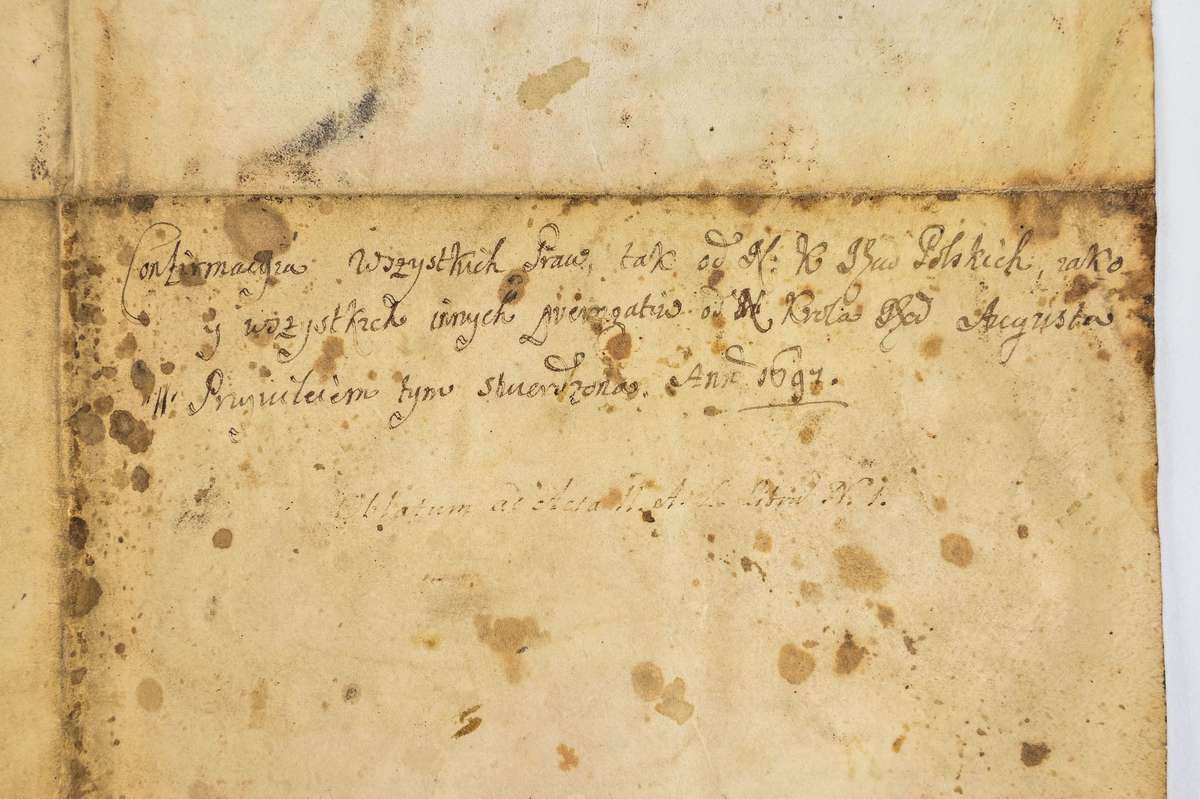 Confirmacyia Wszystkich Praw, tak od N: K Polskich, iako
y wszystkich innych prerogatiw od N Krola Augusta
II. Przywileiem tym stwierdzona. Ann 1697.
Oblatum ad Acta N. 1.